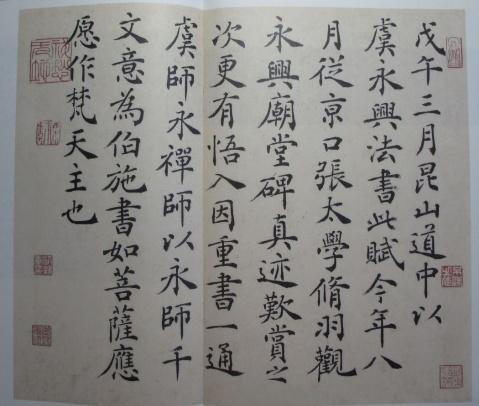 戊午三月昆山道中以
虞永興法書此賦今年八
月從京口張太學脩羽觀
永興廟堂碑真迹歎賞之
次更有悟入因重書一通
虞師永禪師以永師千
文意為伯施書如菩薩應
愿作梵天主也